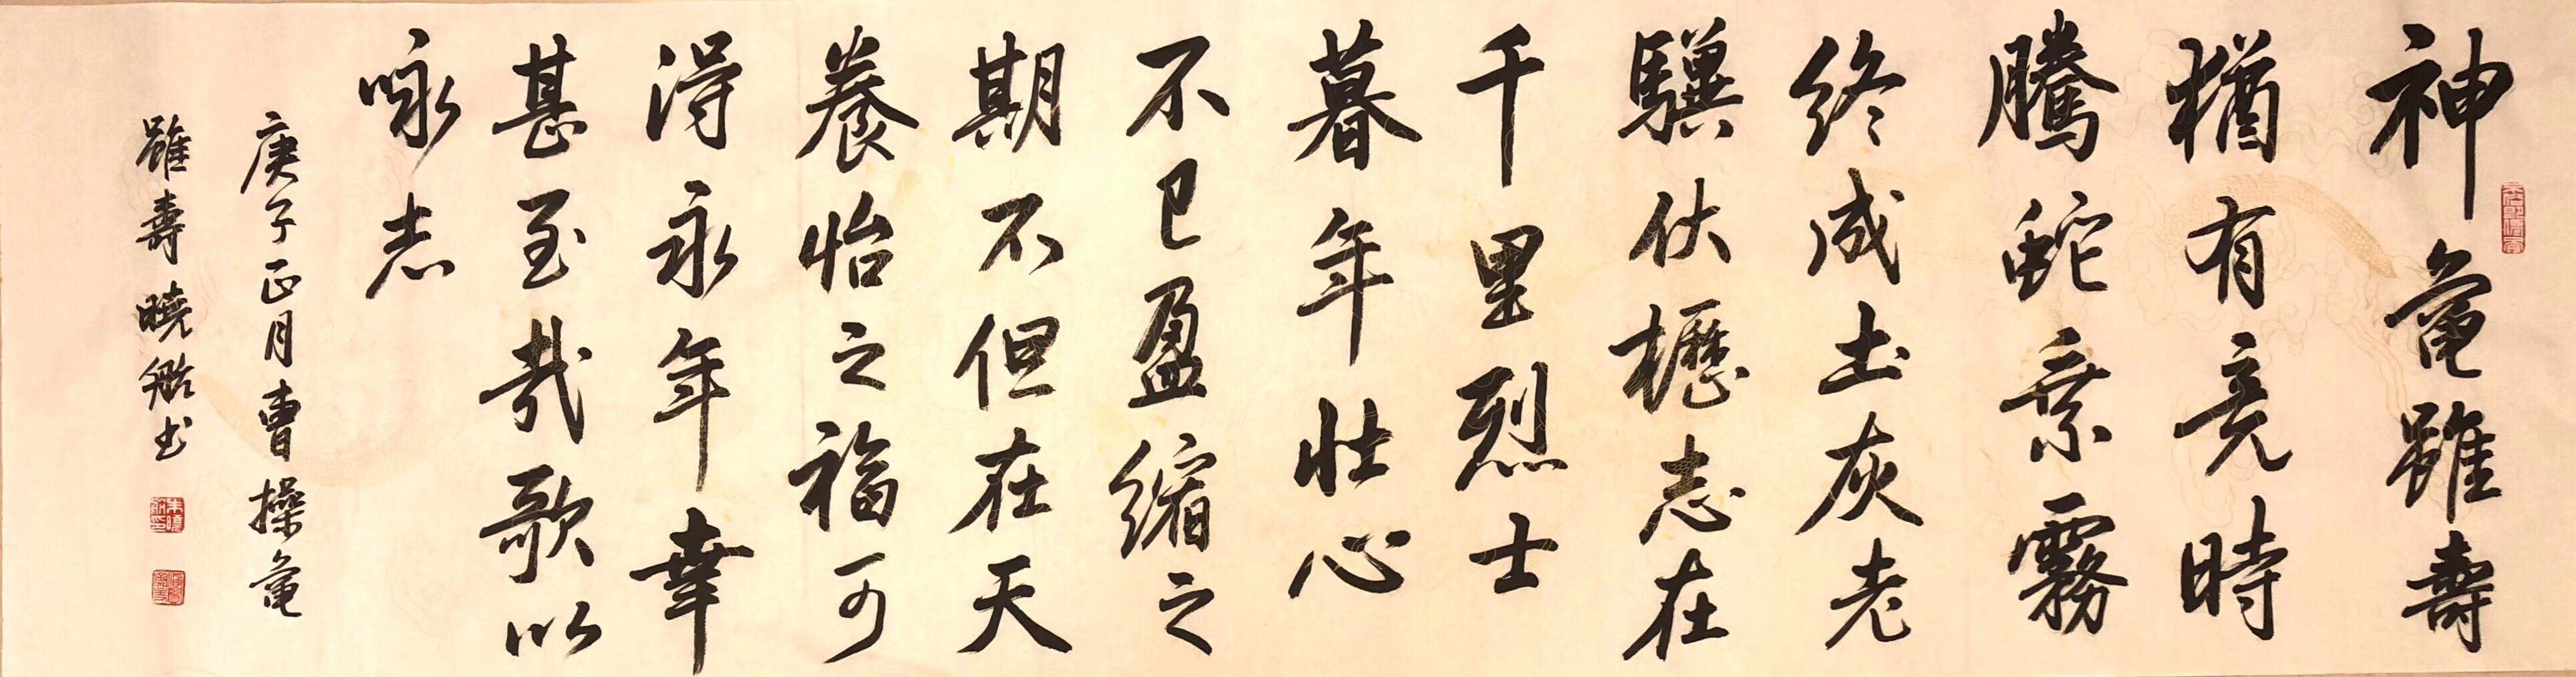 神龜雖壽
猶有竟時
騰蛇乘霧
終成土灰老
驥伏櫪志在
千里烈士
暮年壯心
不已盈縮之
期不但在天
養怡之福可
得永年幸
甚至哉歌以
咏志
庚子正月曹操龜
雖壽曉書